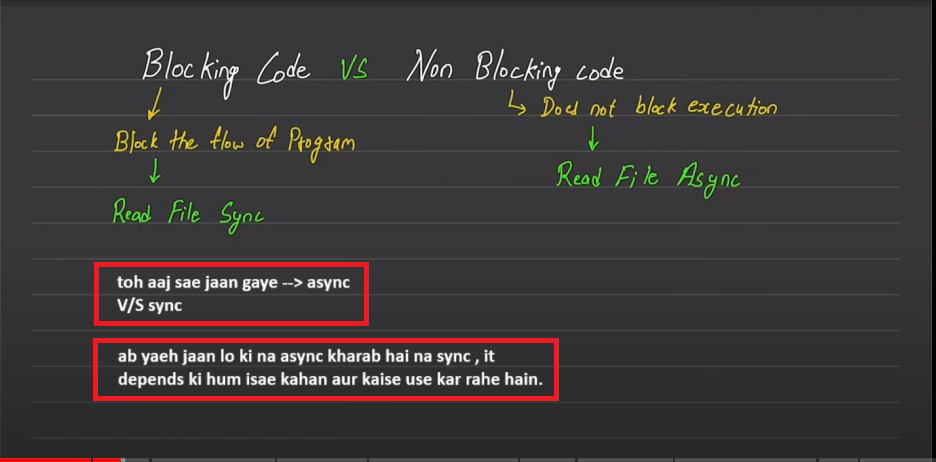 Blocking Code VS Non Blocking code
Block the flow of Program
Does not block execution
Read File Sync
Read File Async
toh aaj sae jaan gaye --> async
V/S sync
ab yaeh jaan lo ki na async kharab hai na sync , it
depends ki hum isae kahan aur kaise use kar rahe hain.